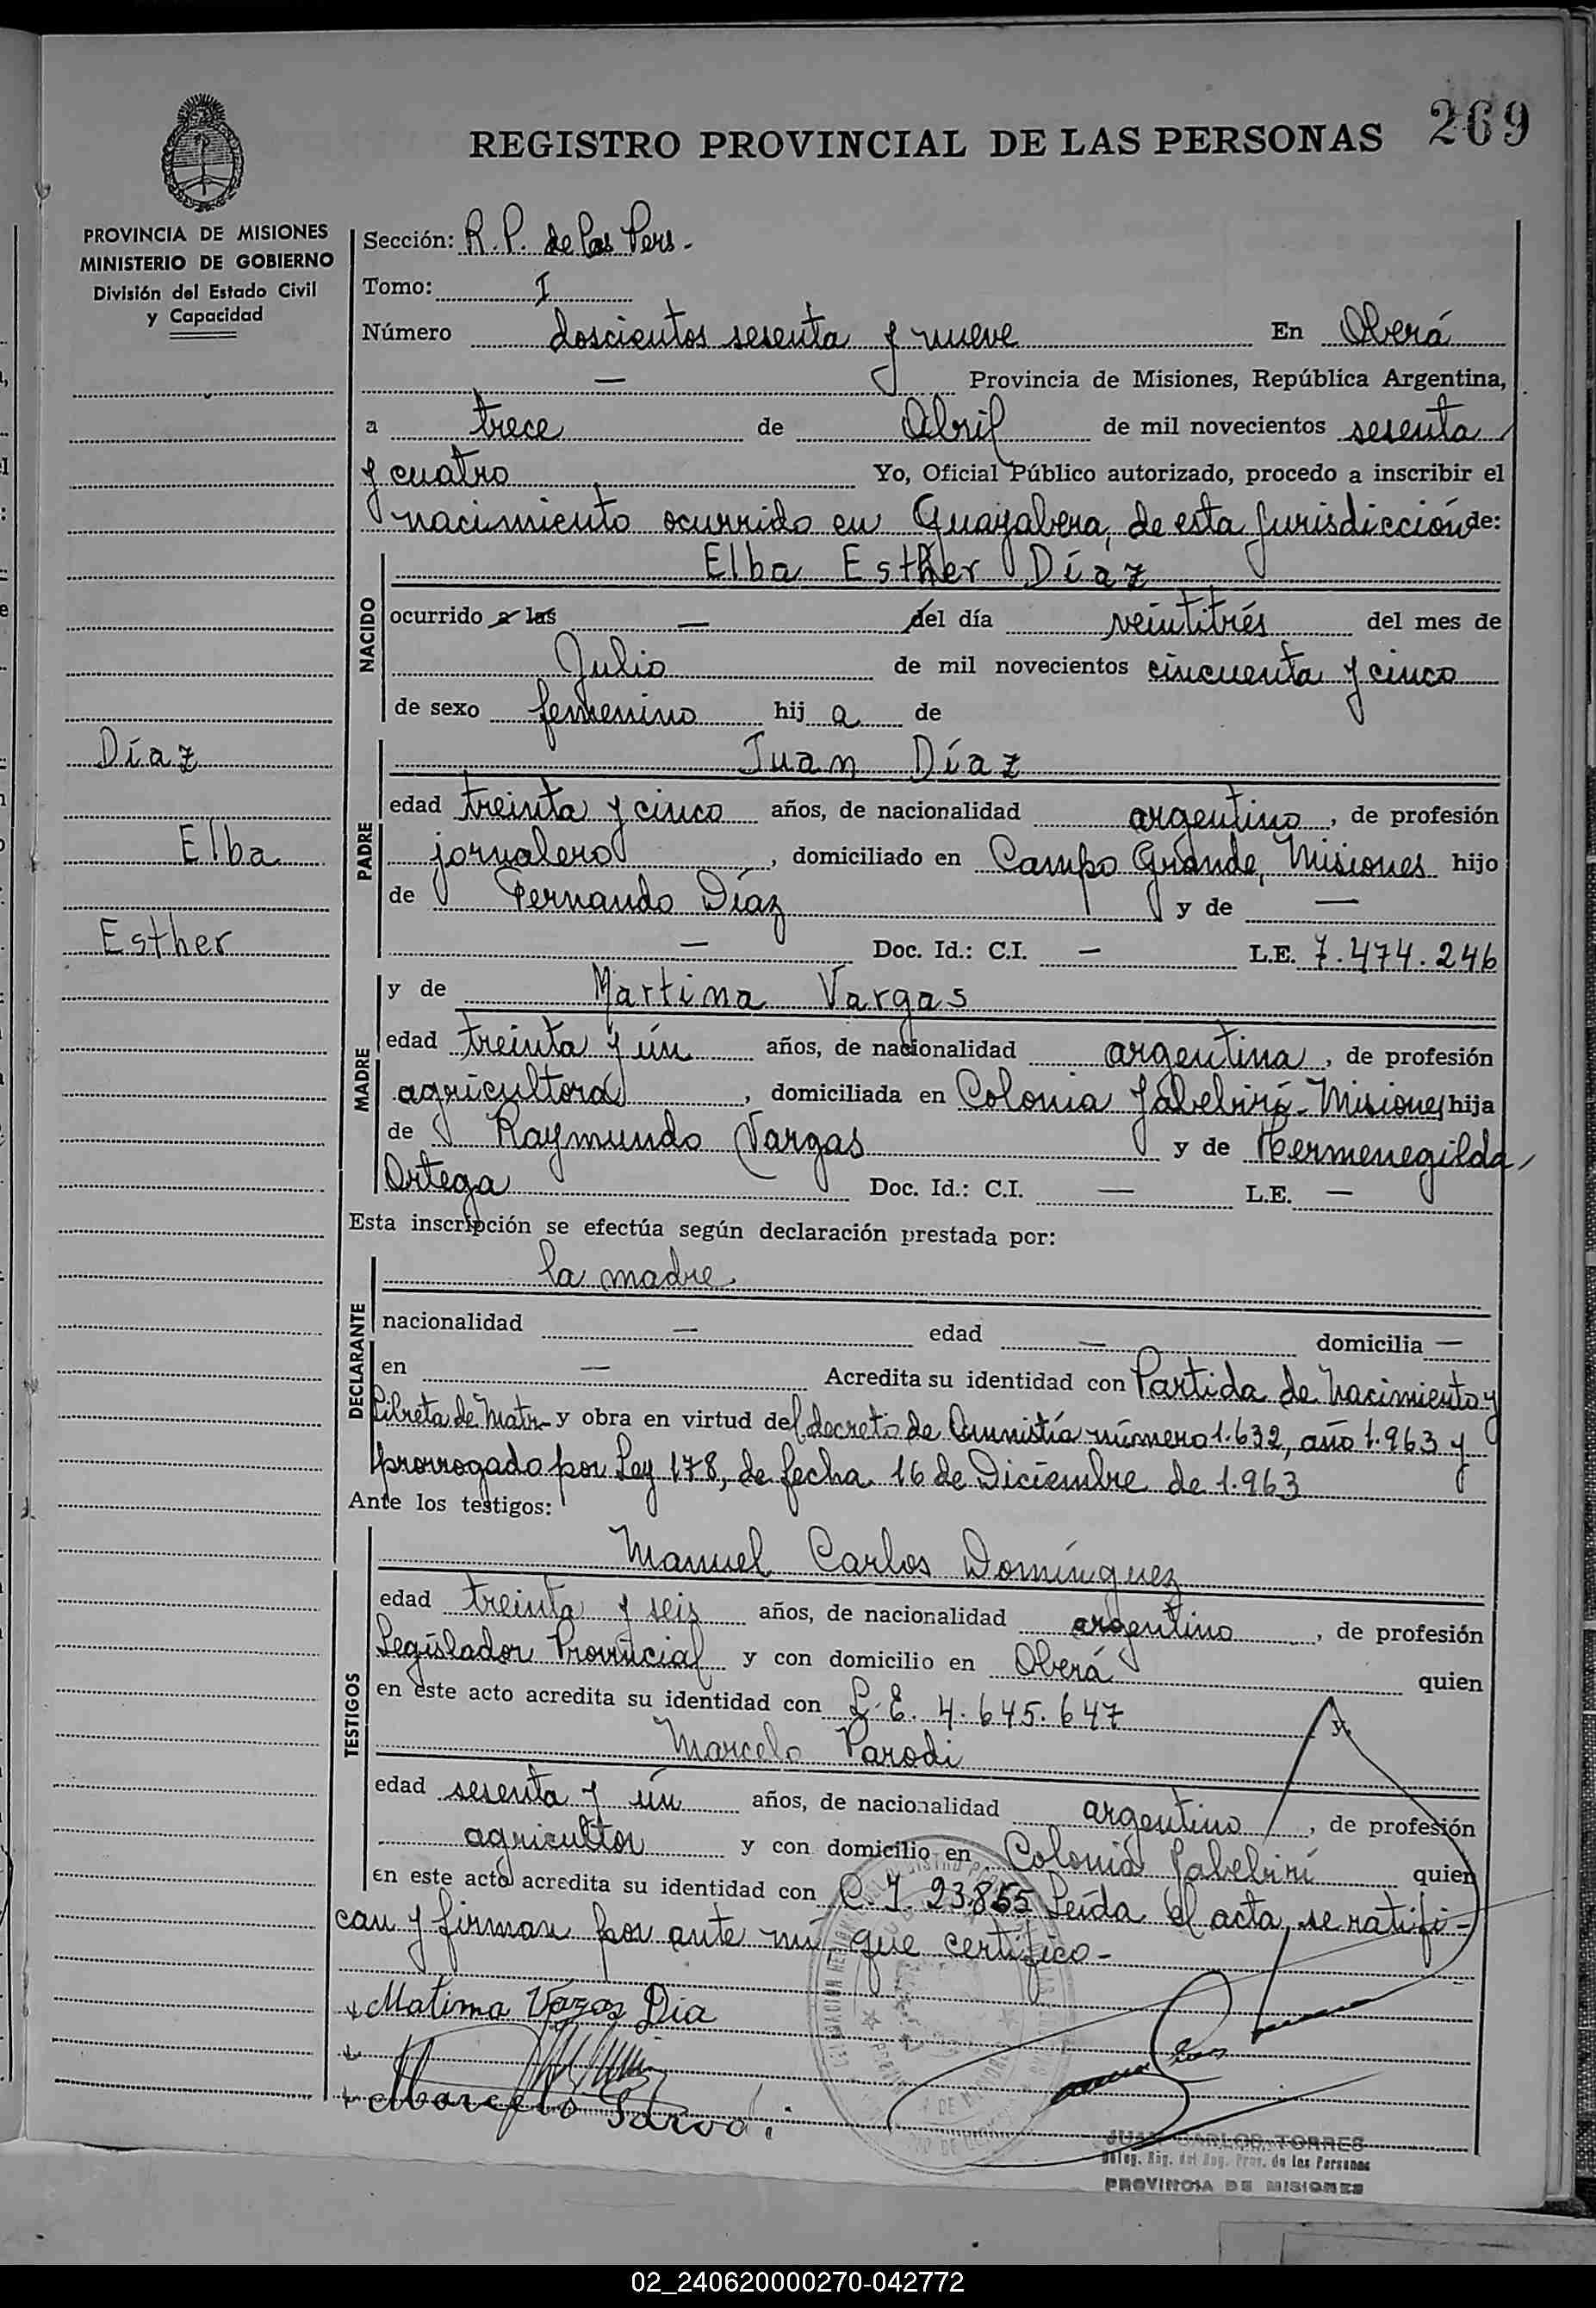 269
REGISTRO PROVINCIAL DE LAS PERSONAS
PROVINCIA DE MISIONES
MINISTERIO DE GOBIERNO
División del Estado Civil
y Capacidad
Sección: R.P. de las Pers.-
Tomo: I
Número doscientos sesenta y nueve En Oberá
— Provincia de Misiones, República Argentina,
a trece de Abril de mil novecientos sesenta
y cuatro Yo, Oficial Público autorizado, procedo a inscribir el
nacimiento ocurrido en Guayabera, de esta Jurisdicción de:
NACIDO
Elba Esther Díaz
ocurrido a las — del día veintitrés del mes de
Julio de mil novecientos cincuenta y cinco
de sexo femenino hij a de
Díaz
Elba
Esther
PADRE
Juan Díaz
edad treinta y cinco años, de nacionalidad argentino, de profesión
jornalero, domiciliado en Campo Grande, Misiones hijo
de Fernando Díaz y de —
— Doc. Id.: C.I. — L.E. 7.474.246
MADRE
y de Martina Vargas
edad treinta y ún años, de nacionalidad argentina, de profesión
agricultora, domiciliada en Colonia Yabebirí-Misiones hija
de Raymundo Vargas y de Hermenegilda
Ortega Doc. Id.: C.I. — L.E. —
Esta inscripción se efectúa según declaración prestada por:
DECLARANTE
la madre
nacionalidad — edad — domicilia —
en — Acredita su identidad con Partida de Nacimiento y
Libreta de Matr- y obra en virtud del decreto de Amnistía número 1.632, año 1.963 y
prorrogado por Ley 178, de fecha 16 de Diciembre de 1.963
Ante los testigos:
TESTIGOS
Manuel Carlos Domínguez
edad treinta y seis años, de nacionalidad argentino, de profesión
Legislador Provincial y con domicilio en Oberá quien
en este acto acredita su identidad con L.E. 4.645.647 y
Marcelo Parodi
edad sesenta y ún años, de nacionalidad argentino, de profesión
agricultor y con domicilio en Colonia Yabebirí quien
en este acto acredita su identidad con C.I. 23.855 Leída el acta, se ratifi-
can y firman por ante mí, que certifico-
Matima Vargas Dia
Marcelo Parodi
JUAN CARLOS TORRES
Deleg. Reg. del Reg. Prov. de las Personas
PROVINCIA DE MISIONES
02_240620000270-042772